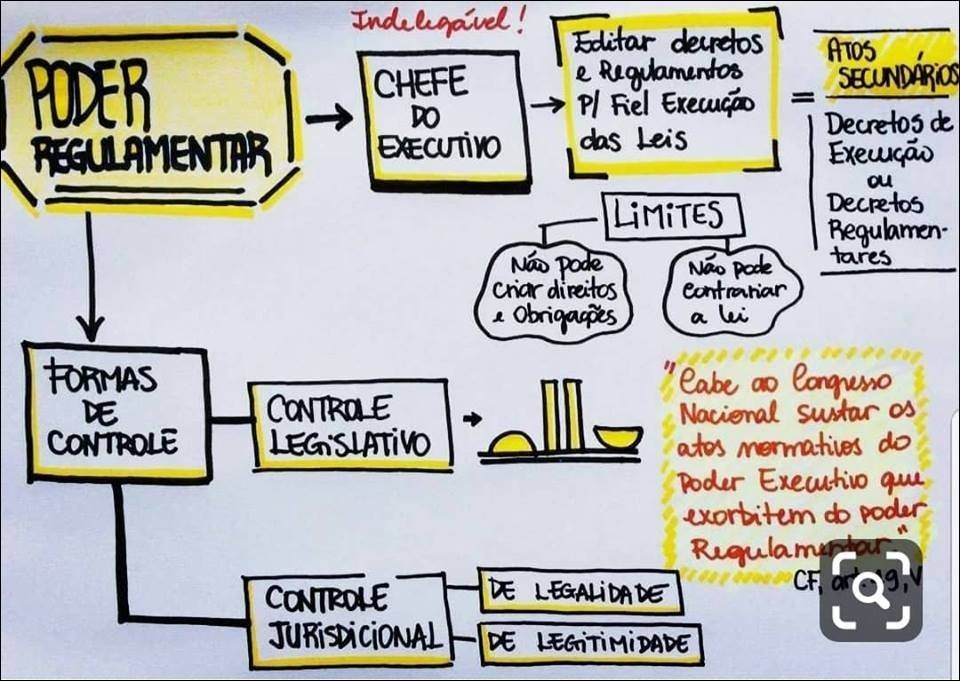 Indelegável!
PODER
REGULAMENTAR
CHEFE
DO
EXECUTIVO
Editar decretos
e Regulamentos
P/ Fiel Execução
das Leis
=
ATOS
SECUNDÁRIOS
Decretos de
Execução
ou
Decretos
Regulamen-
tares
LIMITES
Não pode
criar direitos
e Obrigações
Não pode
contrariar
a lei
FORMAS
DE
CONTROLE
CONTROLE
LEGISLATIVO
"Cabe ao Congresso
Nacional sustar os
atos normativos do
Poder Executivo que
exorbitem do poder
Regulamentar"
CF, art. 49, V
CONTROLE
JURISDICIONAL
DE LEGALIDADE
DE LEGITIMIDADE